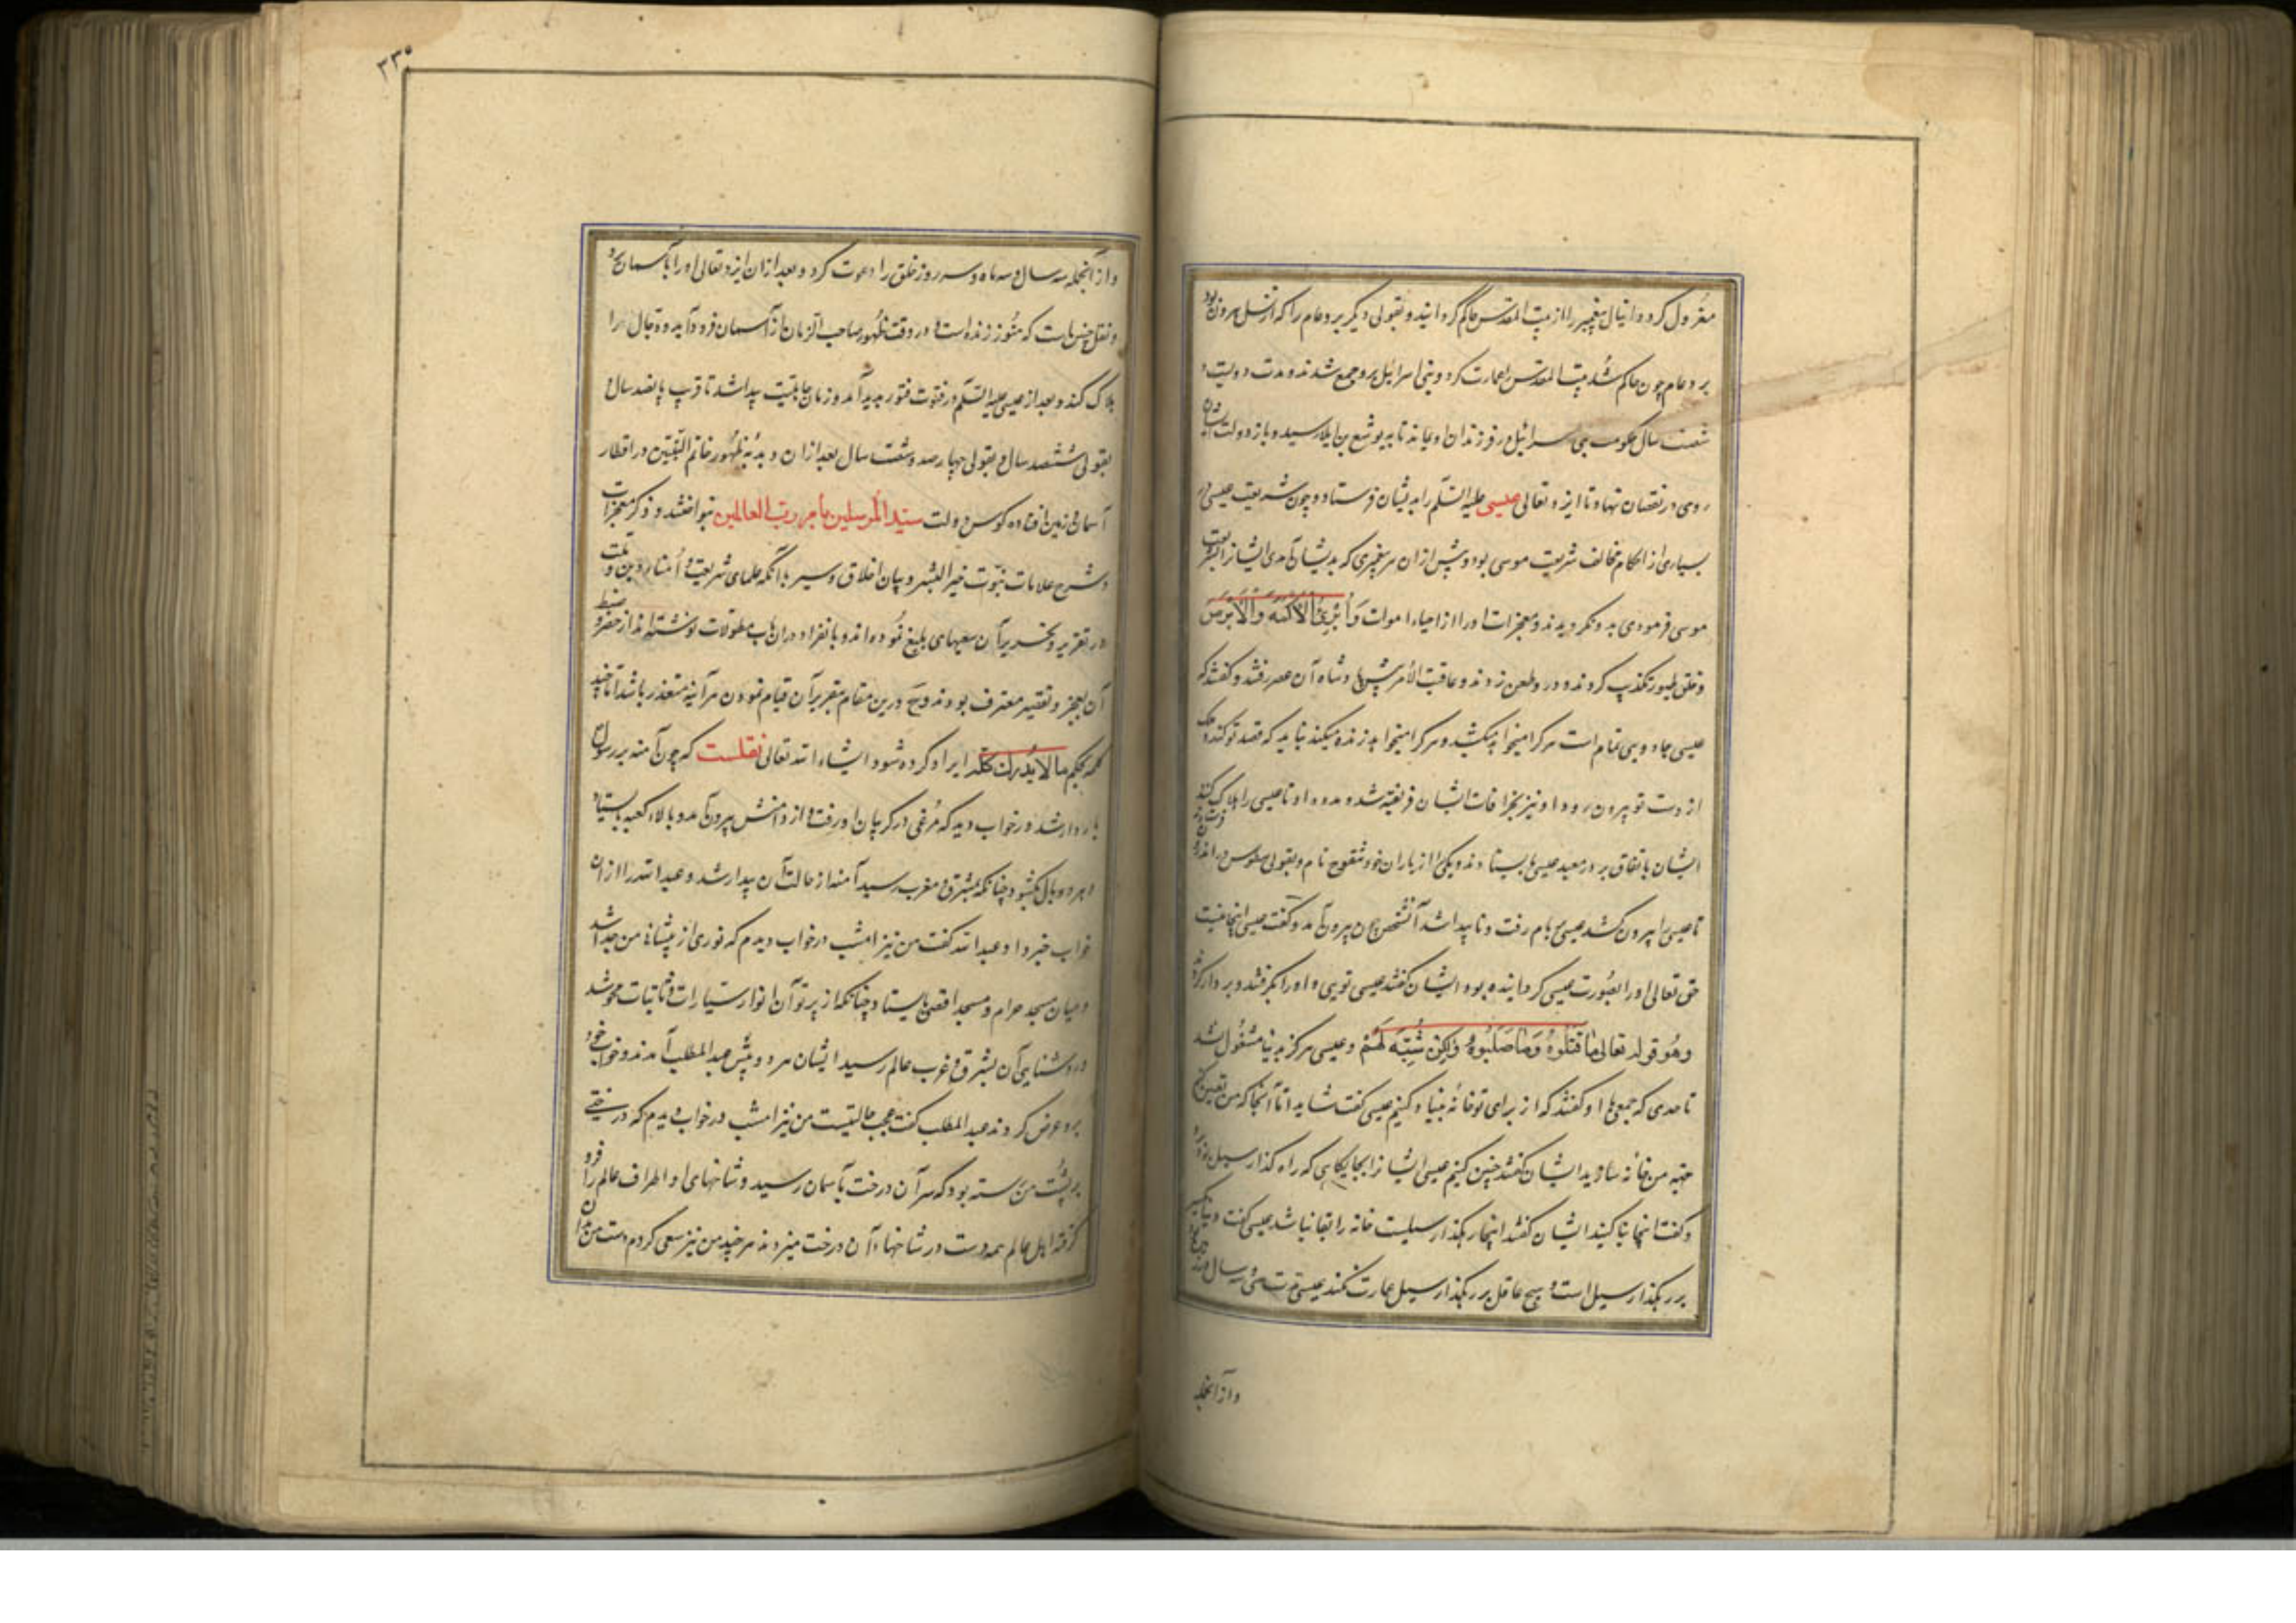 معزول کرد و دانیال پیغمبر را از بیت المقدس حاکم گردانید و بقولی دیگر بردعام را که از نسل هرون بود
بردعام چون حاکم شد بیت المقدس را عمارت کرد و بنی اسرائیل برو جمع شدند و مدت دویست و
شصت سال حکومت بنی اسرائیل در فرزندان او بماند تا به یوشع بن ایلار سید و باز دولت ایشان
روی در نقصان نهاد تا ایزد تعالی عیسی علیه السلم را بدیشان فرستاد و چون شریعت عیسی در
بسیاری از احکام مخالف شریعت موسی بود و پیش از آن هر پیغمبری که بدیشان آمدی ایشانرا بشریعت
موسی فرمودی بدو نگرویدند و معجزات او را از احیاء اموات وَأُبْرِئُ الْأَكْمَهَ وَالْأَبْرَصَ
و خلق طیور تکذیب کردند و در وطعن زدند و عاقبت الامر پیش پادشاه آن عصر رفتند و گفتند که
عیسی جادویی تمام است هر کرا میخواهد میکشد و هر کرا میخواهد زنده میکند نباید که قصد تو کند و ملک
از دست تو بیرون رود او نیز بخرافات ایشان فریفته شد و مدد داد تا عیسی را هلاک کنند
ایشان باتفاق بر در معبد عیسی بایستادند و یکی را از یاران خود نام و بقولی در اندرون فرستادند
تا عیسی را بیرون کشد عیسی ببام رفت و ناپیدا شد آنشخص چون بیرون آمد و گفت عیسی اینجا نیست
حق تعالی او را بصورت عیسی گردانیده بود ایشان گفتند عیسی تویی و او را بگرفتند و بر دار کردند
وهو قوله تعالى مَا قَتَلُوهُ وَمَا صَلَبُوهُ وَلَكِنْ شُبِّهَ لَهُمْ و عیسی هرگز بدنیا مشغول نشد
تا حدی که جمعی با او گفتند که از برای تو خانه بنیاد کنیم عیسی گفت شاید اما آنجا که من تعیین کنم
جهة من خانه سازید ایشان گفتند چنین کنیم عیسی ایشانرا بجایگاهی که راه گذار سیل بود برد
و گفت اینجا بنا کنید ایشان گفتند اینجا رهگذار سیلست خانه را بقا نباشد عیسی گفت دنیا نیز
بر رهگذار سیل است و هیچ عاقل بر رهگذار سیل عمارت نکند عیسی سی و سه سال
و از آنجمله
۳۳۰
و از آنجمله سه سال و سه ماه و سه روز خلق را دعوت کرد و بعد از آن ایزد تعالی او را بآسمان برد
و نقل چنین است که هنوز زنده است و در وقت ظهور صاحب الزمان از آسمان فرود آید و دجال را
هلاک کند و بعد از عیسی علیه السلم در فتوت فتور پدید آمد و زمان جاهلیت پیدا شد تا قرب پانصد سال و
بقولی ششصد سال و بقولی چهارصد و شصت سال بعد از آن دبدبه ظهور خاتم النبیین در اقطار
آسمان و زمین افتاده کوس دولت سید المرسلین بامر رب العالمین بنواختند و ذکر معجزات
و شرح علامات نبوت خیر البشر و بیان اخلاق و سیر با آنکه علمای شریعت و امناء دین و ملت
در تقریر و تحریر آن سعیهای بلیغ نموده اند و بانفراد در آن باب مطولات نوشته اند از حصر و ضبط
آن بعجز و تقصیر معترف بودند و هیچ درین مقام بتقریر آن قیام نمودن هرآینه متعذر باشد اما
کلمه بحکم ما لا یدرک کله ایراد کرده شود انشاء الله تعالی نقلست که چون آمنه برسول
باردار شد در خواب دید که مرغی در گریبان او رفت و از دامنش بیرون آمد و بالاء کعبه بایستاد
و هر دو بال بگشود چنانکه بمشرق و مغرب رسید آمنه از حالت آن بیدار شد و عبد الله را از آن
خواب خبر داد عبد الله گفت من نیز امشب در خواب دیدم که نوری از پیشانی من جدا شد
و میان مسجد حرام و مسجد اقصی بایستاد چنانکه از پرتو آن انوار سیارات و ثابتات محو شد
و روشنایی آن بشرق و غرب عالم رسید ایشان هر دو پیش عبد المطلب آمدند و خواب خود
برو عرض کردند عبد المطلب گفت عجب حالتیست من نیز امشب در خواب دیدم که درختی
بر پشت من رسته بود که سر آن درخت بآسمان رسید و شاخهای او اطراف عالم را فرو
گرفته اهل عالم همه دست در شاخهاء آن درخت میزدند هر چند من نیز سعی کردم دست من بدان